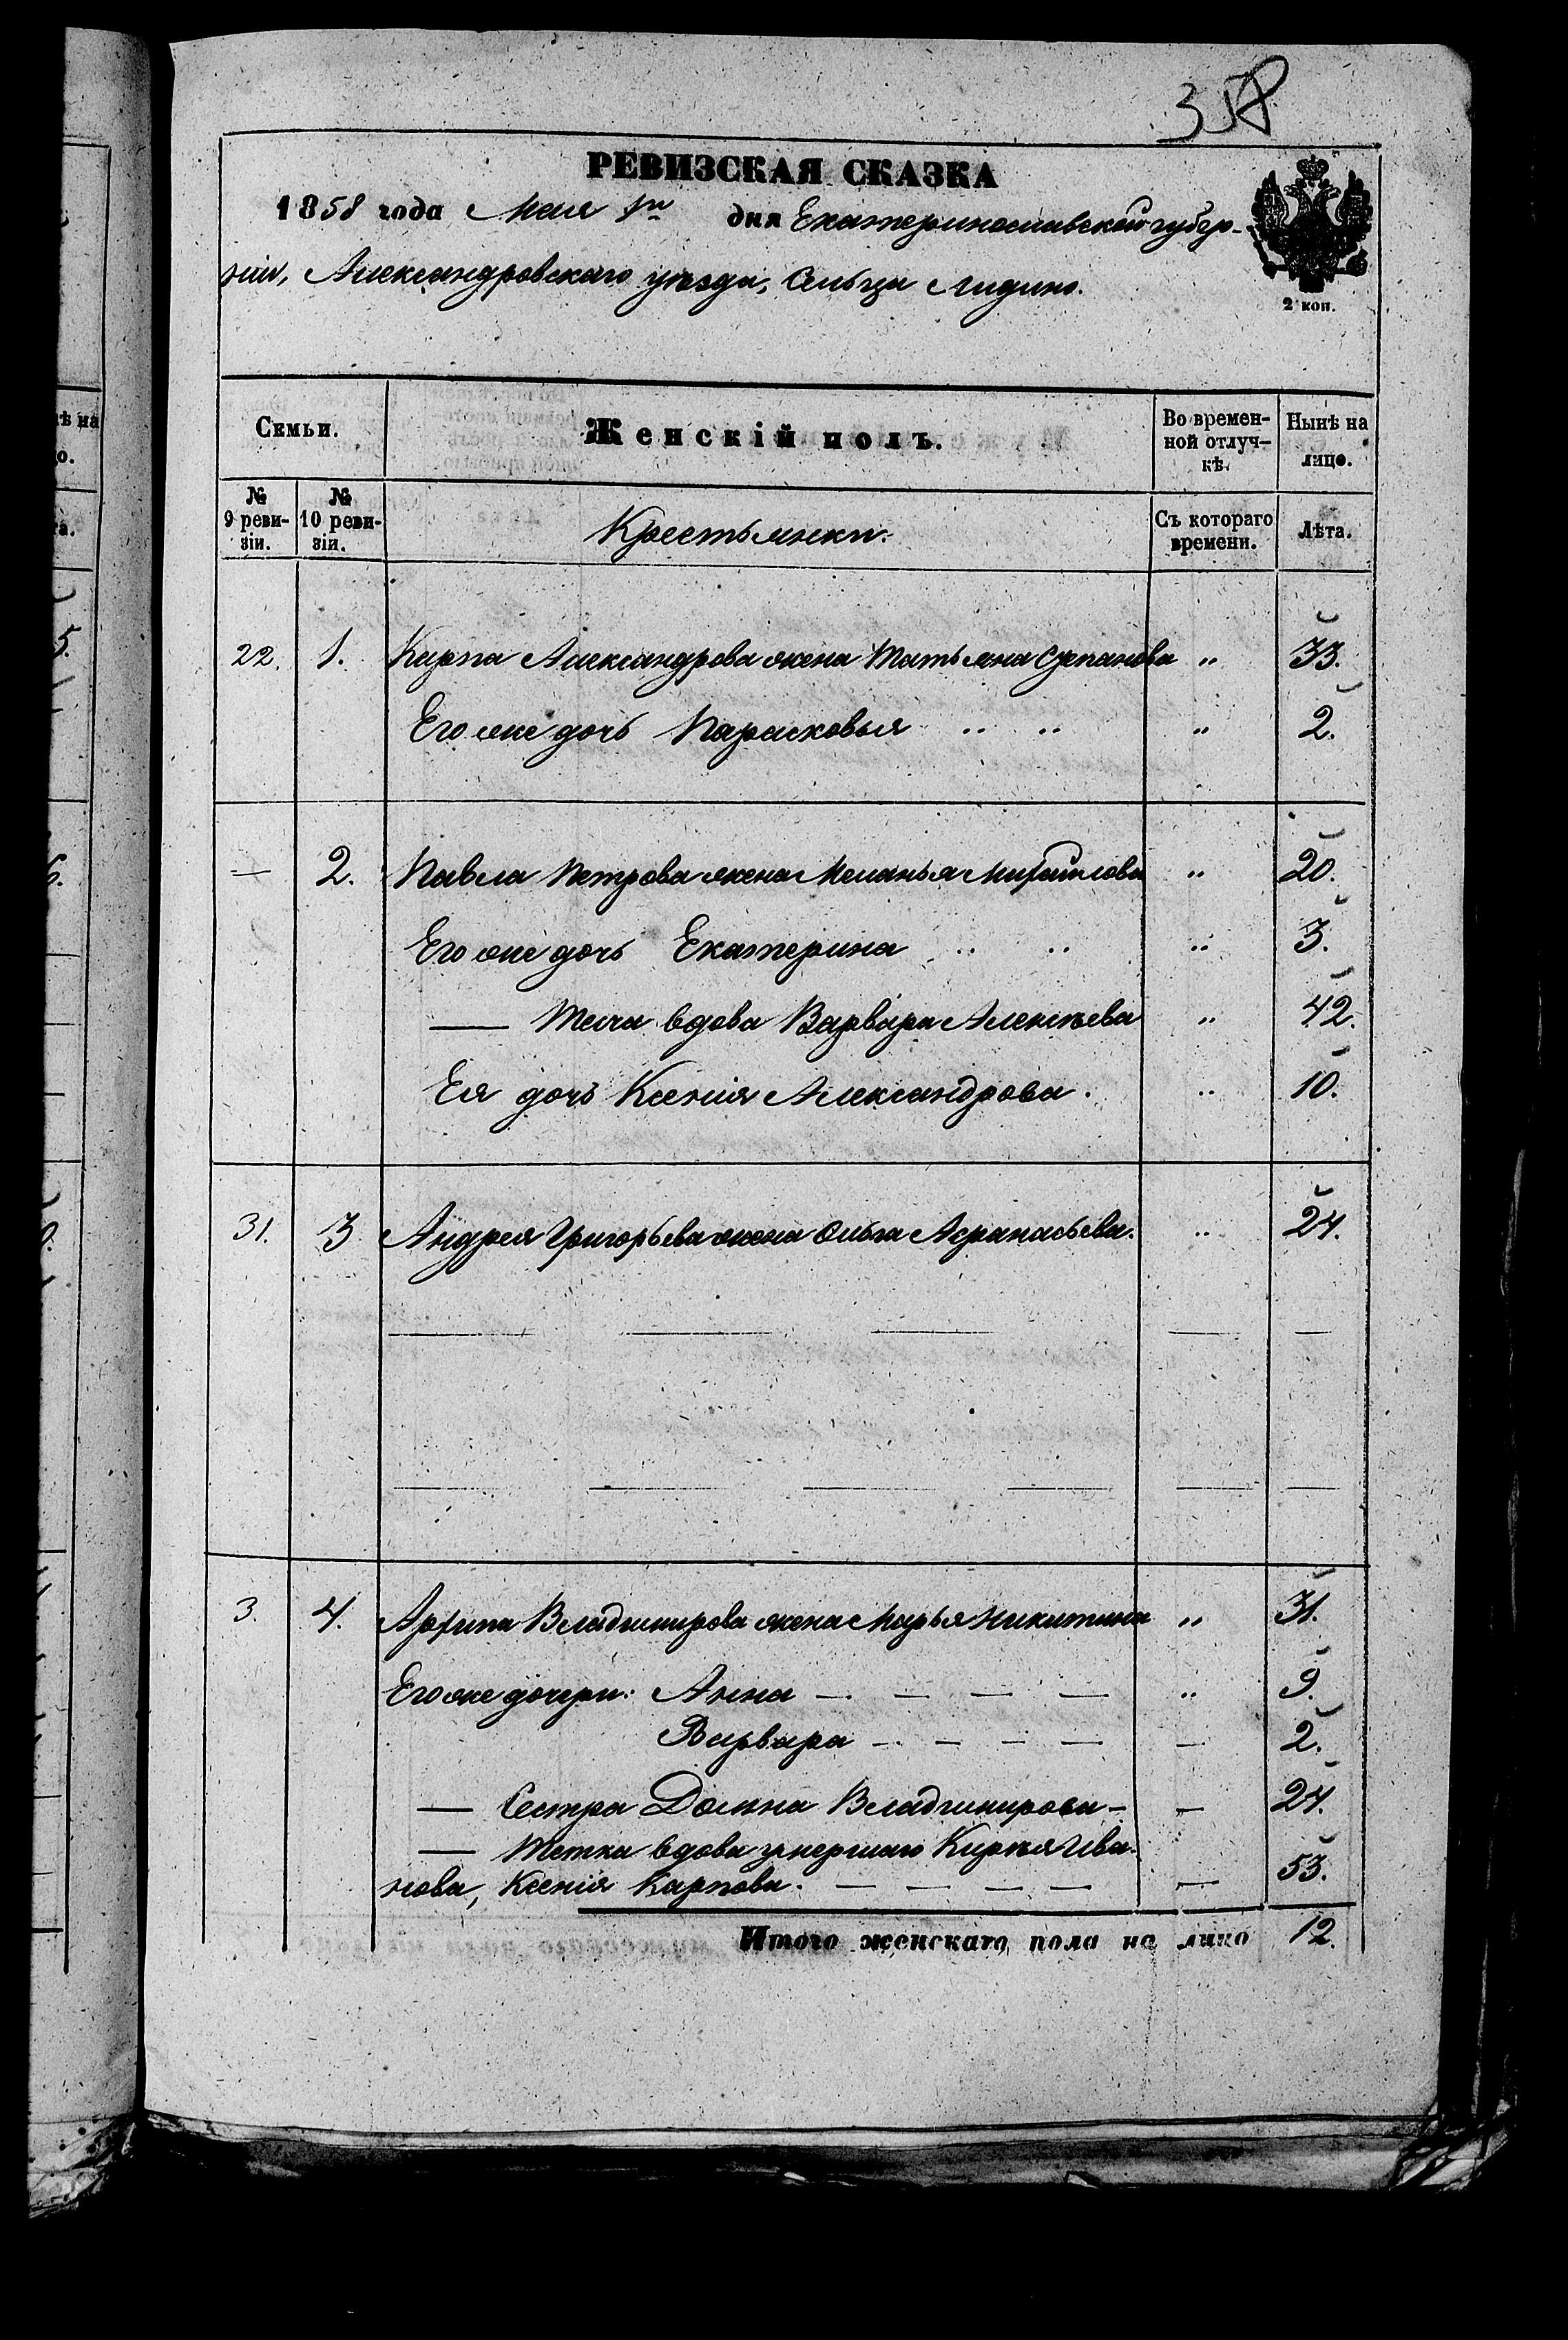 358
РЕВИЗСКАЯ СКАЗКА
1858 года Мая 1го дня Екатеринославской губер-
нiи, Александровскаго уѣзда, Сельца Лидино.
2 коп.
Семьи. Женскiй полъ. Во времен-ной отлуч-кѣ. Нынѣ на лицо.
№ 9 реви-зiи. № 10 реви-зiи. Крестьянки. Съ котораго времени. Лѣта.
22. 1. Карпа Александрова жена Татьяна Степанова " 33.
Его же дочь Парасковья " " " 2.
— 2. Павла Петрова жена Меланья Михайлова " 20.
Его же дочь Екатерина " " " 3.
— Теща вдова Варвара Алексѣева " 42.
Ея дочь Ксенiя Александрова. " 10.
31. 3 Андрея Григорьева жена Ольга Афанасьева. " 24.
3. 4. Архипа Владимирова жена Марья Никитина " 31.
Его же дочери: Анна — — — — " 9.
Варвара — — — — — 2.
— Сестра Домна Владимирова — — 24.
— Тетка вдова умершаго Кирѣя Ива-
нова, Ксенiя Карпова. — — — — — 53.
Итого женскаго пола на лицо 12.
ѣ на
о.
а.
5.
6.
0.